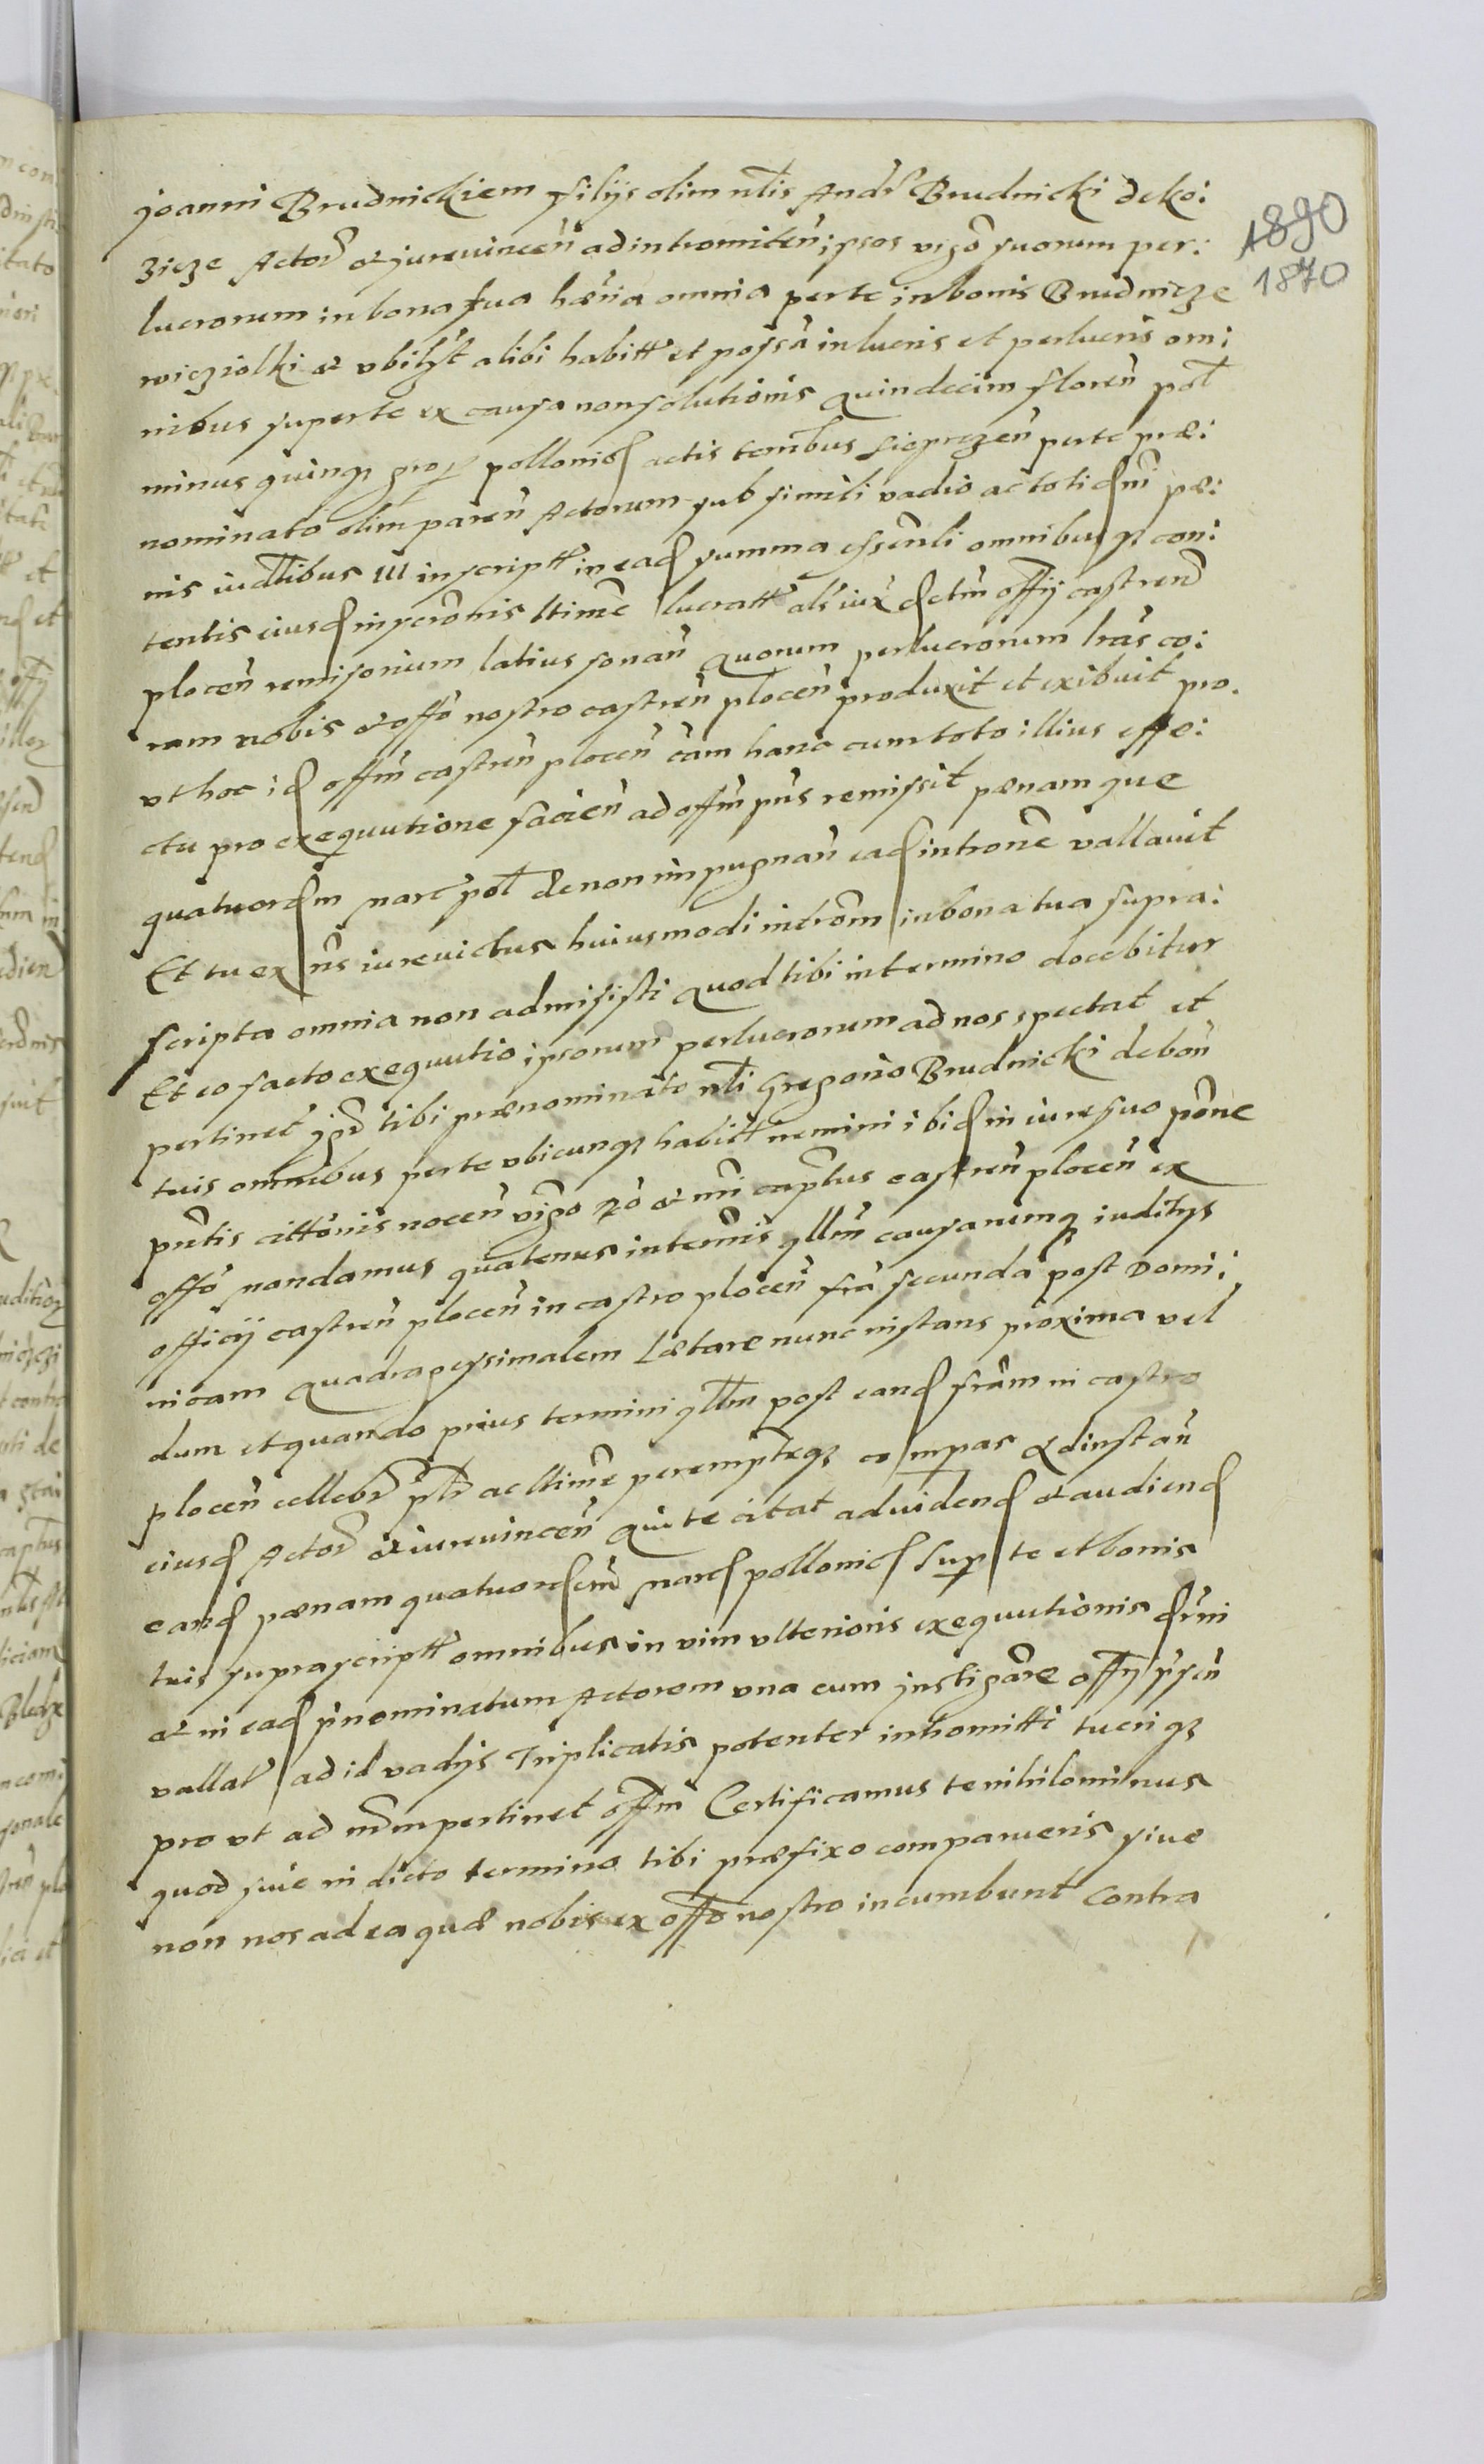 Joanni Brudnickiem filijs olim nłis Andr Brudnicki de Ko:
zicze Actor et jurevincen ad intromitten ipsos vigo suorum per:
lucrorum in bona tua haeria omnia per te in bonis Brudnicze
wicziolki et ubilzt alibi habitt et possa in lucris et perlucris om:
nibus super te ex causa non solutionis Quindecim floren pol
minus quinq gros pollonicd actis terribus Sieprczen per te prae:
nominato olim paren Actorum sub simili vadio ac totidni pae:
nis iudlibus III inscriptt in ead summa essenli omnibusq con:
tentis eiusd inscronis ltime lucratt als iux dctm offij castren
plocen remisorium latius sonan Quorum perlucrorum lras co:
ram nobis et offo nostro castren plocen produxit et exibuit pro.
ut hoc id offm castren plocen cam hanc cum toto illius effe:
ctu pro exequutione facien ad offm pns remissit paenam que
quatuordm marc pol de non impugnan ead introne vallavit
Et tu ex ns iurevictus huiusmodi introm in bona tua supra:
scripta omnia non admisisti Quod tibi in termino docebitur
Et eo facto exequutio ipsorum perlucrorum ad nos spectat et
pertinet jgr tibi praenominato nłi Gregorio Brudnicki de bon
tuis omnibus per te ubicunq habitt nemini ibid in iure suo pone
pntis cittonis nocen vigo Ro et nri captus castren plocen ex
offo mandamus quatenus in termis qllm causarumq iuditijs
officij castren plocen in castro plocen fra secunda post Domi:
nicam Quadragessimalem Laetare nunc instans proxima vel
dum et quando prius termini qllm post eand fram in castro
plocen cellebr ptr ac ltime perempteq compas ad instan
eiusd Actor et iurevincen Qui te citat ad videnđ et audienđ
eand paenam quatuordcim marcd pollonicd sup te et bonis
tuis suprascriptt omnibus in vim ulterioris exequutionis drni
et in ead pnominatum Actorem una cum instigare offij pssen
vallar ad id vadijs Triplicatis potenter intromitti tueriq
pro ut ad nrm pertinet offm Certificamus te nihilominus
quod sive in dicto termino tibi praefixo comparueris sive
non nos ad ea quae nobis ex offo nostro incumbunt contra
1890
1870